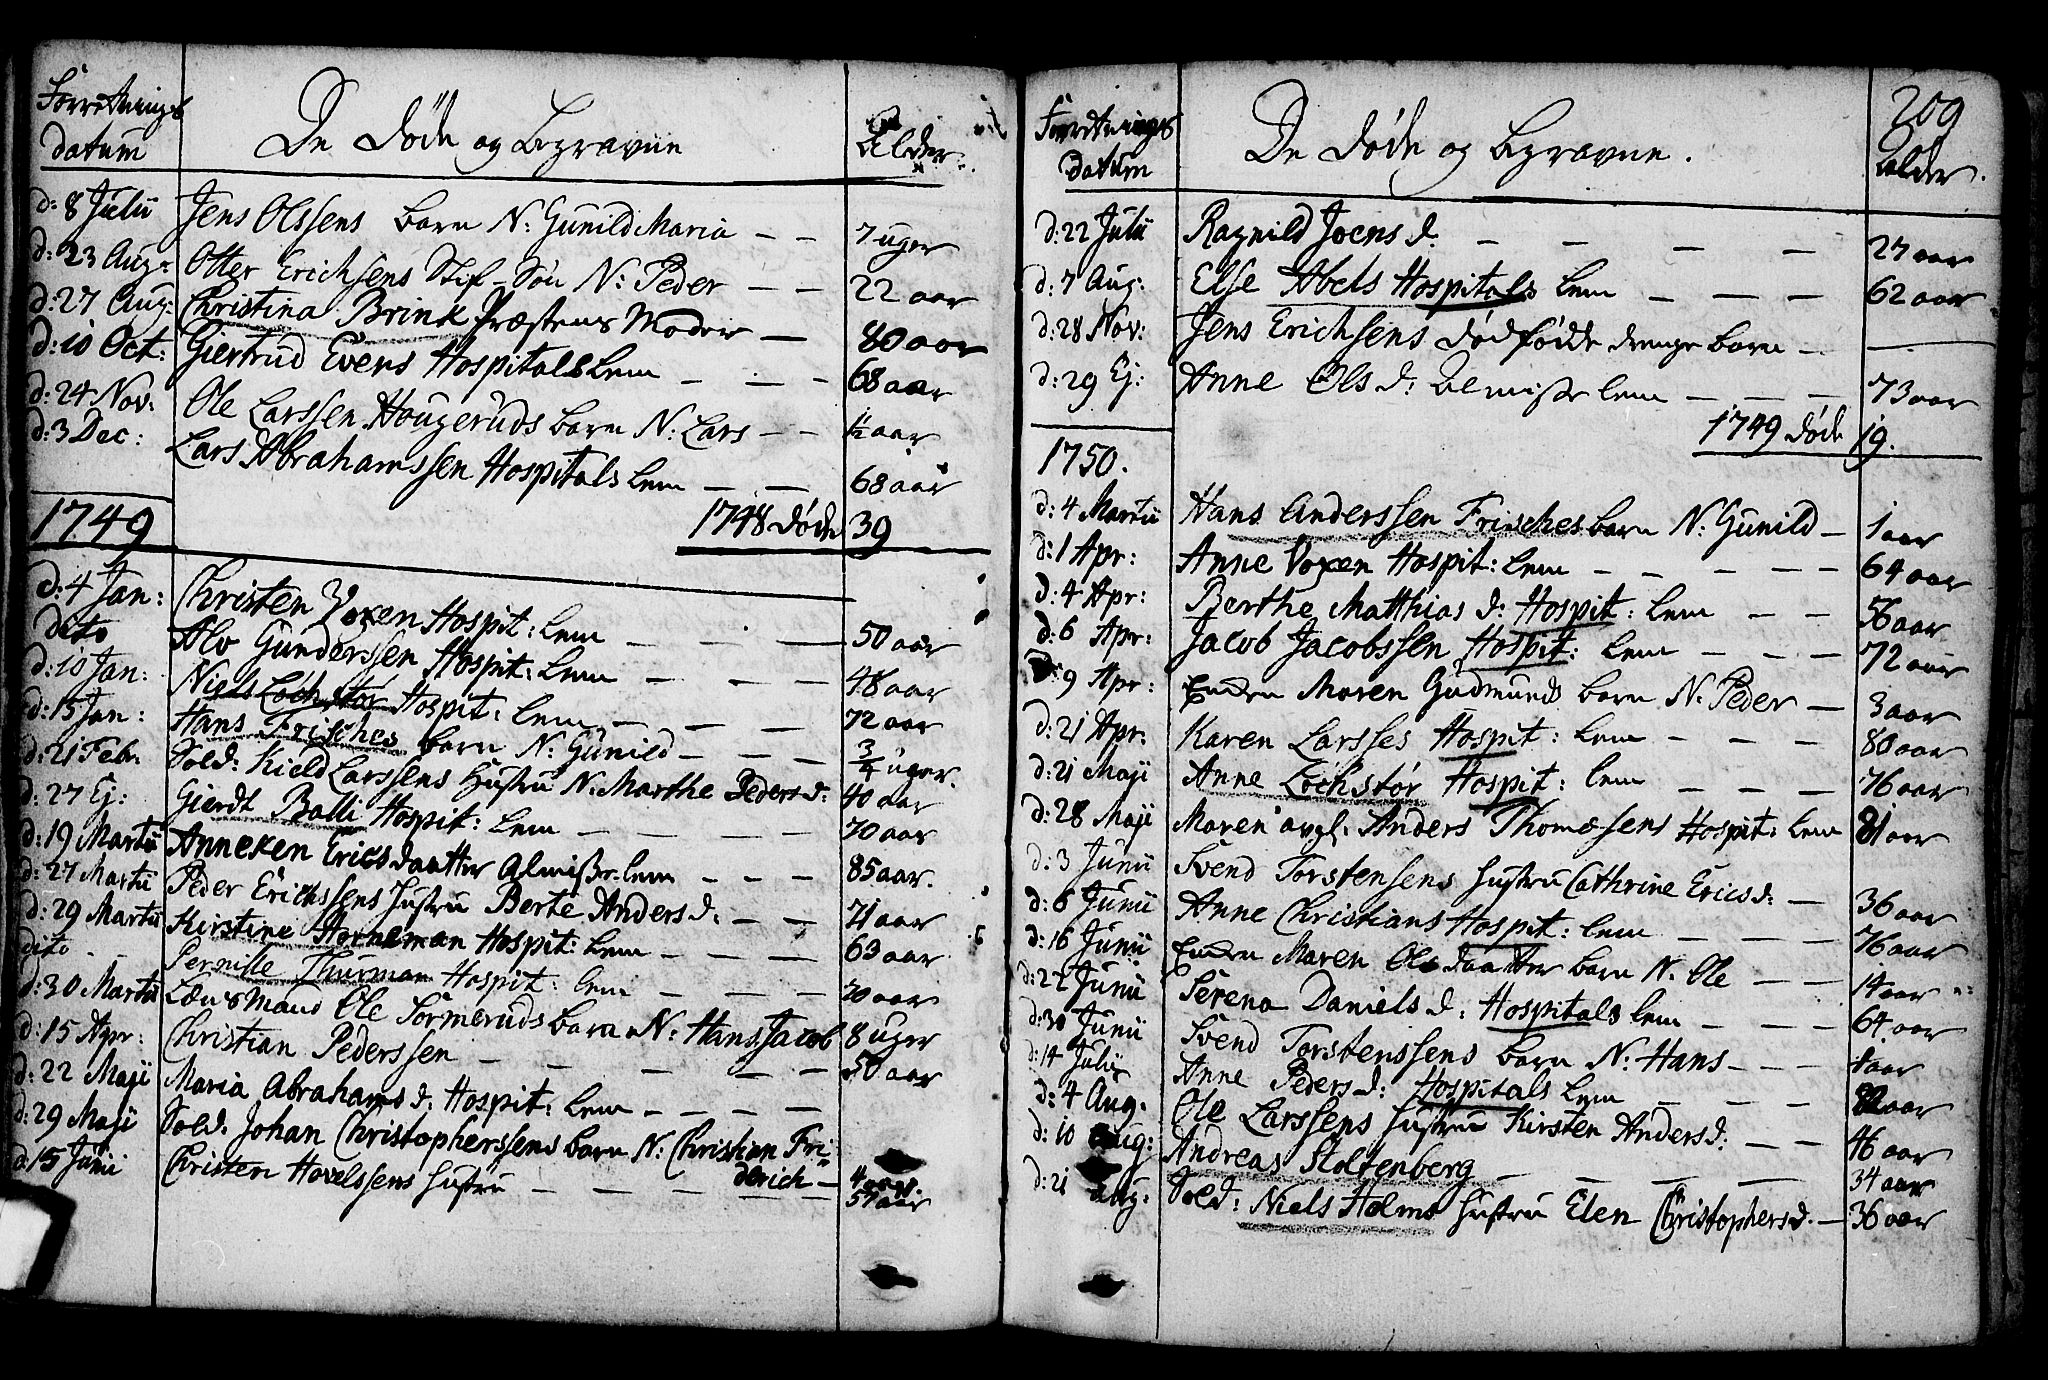 Forretnings datum De döde og begravne Alder.
d: 8 Julii Jens Olssens barn N: Gunild Maria — — 7 uger
d: 23 Aug: Otter Erichsens Stif-Sön N: Peder — — 22 aar
d: 27 Aug: Christina Brink Præstens Moder — 80 aar
d: 10 Oct: Giertrud Evens Hospitals lem — — — 68 aar
d: 24 Nov: Ole Larssen Hougeruds barn N: Lars — — 1/2 aar
d: 3 Dec: Lars Abrahamssen Hospitals lem — — 68 aar
1749 1748 döde 39
d: 4 Jan: Christen Voxen Hospit: lem — — — 50 aar
dito Alv Gunderssen Hospit: lem — — — 48 aar
d: 10 Jan: Niels Lochstör Hospit: lem — — — 72 aar
d: 15 Jan: Hans Frisches barn N: Gunild — — — 3/4 uger.
d: 21 Febr. Sold: Kield Larssens Hustru N. Marthe Peders d: 40 aar
d: 27 Ej: Gierdt Balli Hospit: lem — — — — 70 aar
d: 19 Martii Anneken Erics daatter Almisse lem — — — 85 aar.
d: 27 Martii Peder Erichssens Hustru Berte Anders d. — — 71 aar
d: 29 Martii Kirstine Horneman Hospit: lem — — — 63 aar
dito Pernille Thurman Hospit: lem — — — 70 aar
d: 30 Martii Lænsmand Ole Sörmeruds barn N: Hans Jacob 8 uger
d: 15 Apr: Christian Pederssen — — — — — 50 aar
d: 22 Maji Maria Abrahams d: Hospit: lem — — — —
d: 29 Maji Sold. Johan Christopherssens barn N: Christian Fri-
derich — 4
d. 15 Junii Christen Hovelssens Hustru — — — — 57 aar
Forretnings datum De döde og begravne. 209 Alder.
d: 22 Julii Ragnild Joens d. — — — — 27 aar
d: 7 Aug: Else Abels Hospitals lem — — — 62 aar
d: 28 Nov: Jens Erichsens dödfödde drenge barn — —
d: 29 Ej: Anne Ols d: Almisse lem — — — 73 aar
1749 döde 19.
1750.
d: 4 Martii Hans Anderssen Frisches barn N: Gunild — 1 aar
d: 1 Apr: Anne Voxen Hospit: lem — — — — 64 aar
d: 4 Apr: Berthe Matthias d: Hospit: lem — — 56 aar
d: 6 Apr: Jacob Jacobssen Hospit: lem — — — 72 aar
d: 9 Apr: Enken Maren Gudmunds barn N: Peder — 3 aar
d: 21 Apr: Karen Larsses Hospit: lem — — — 80 aar
d: 21 Maji Anne Lochstör Hospit: lem — — — 76 aar
d: 28 Maji Maren Anders Thomesens Hospit: lem 81 aar
d: 3 Junii Svend Torstensens Hustru Cathrine Erics d: — 36 aar
d: 6 Junii Anne Christians Hospit: lem — — — 76 aar
d: 16 Junii Enken Maren Ols daatter barn N. Ole — — 14 aar
d: 22 Junii Serena Daniels d: Hospitals lem — — — 64 aar
d: 30 Junii Svend Torstenssens barn N: Hans — — — aar
d: 14 Julii Anne Peders d: Hospitals lem — — — aar
d: 4 Aug. Ole Larssens Hustru Kirsten Anders d. — — 46 aar
d: 10 Aug: Andreas Stoltenberg — — — — 34 aar
d: 21 Aug. Sold: Niels Holms Hustru Elen Christophers d. — 36 aar